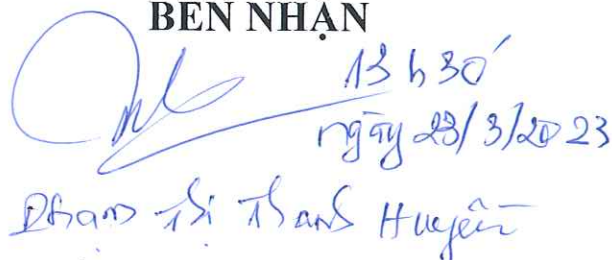 BÊN NHẬN
13h30'
ngày 23/3/2023
Phạm Thị Thanh Huyền